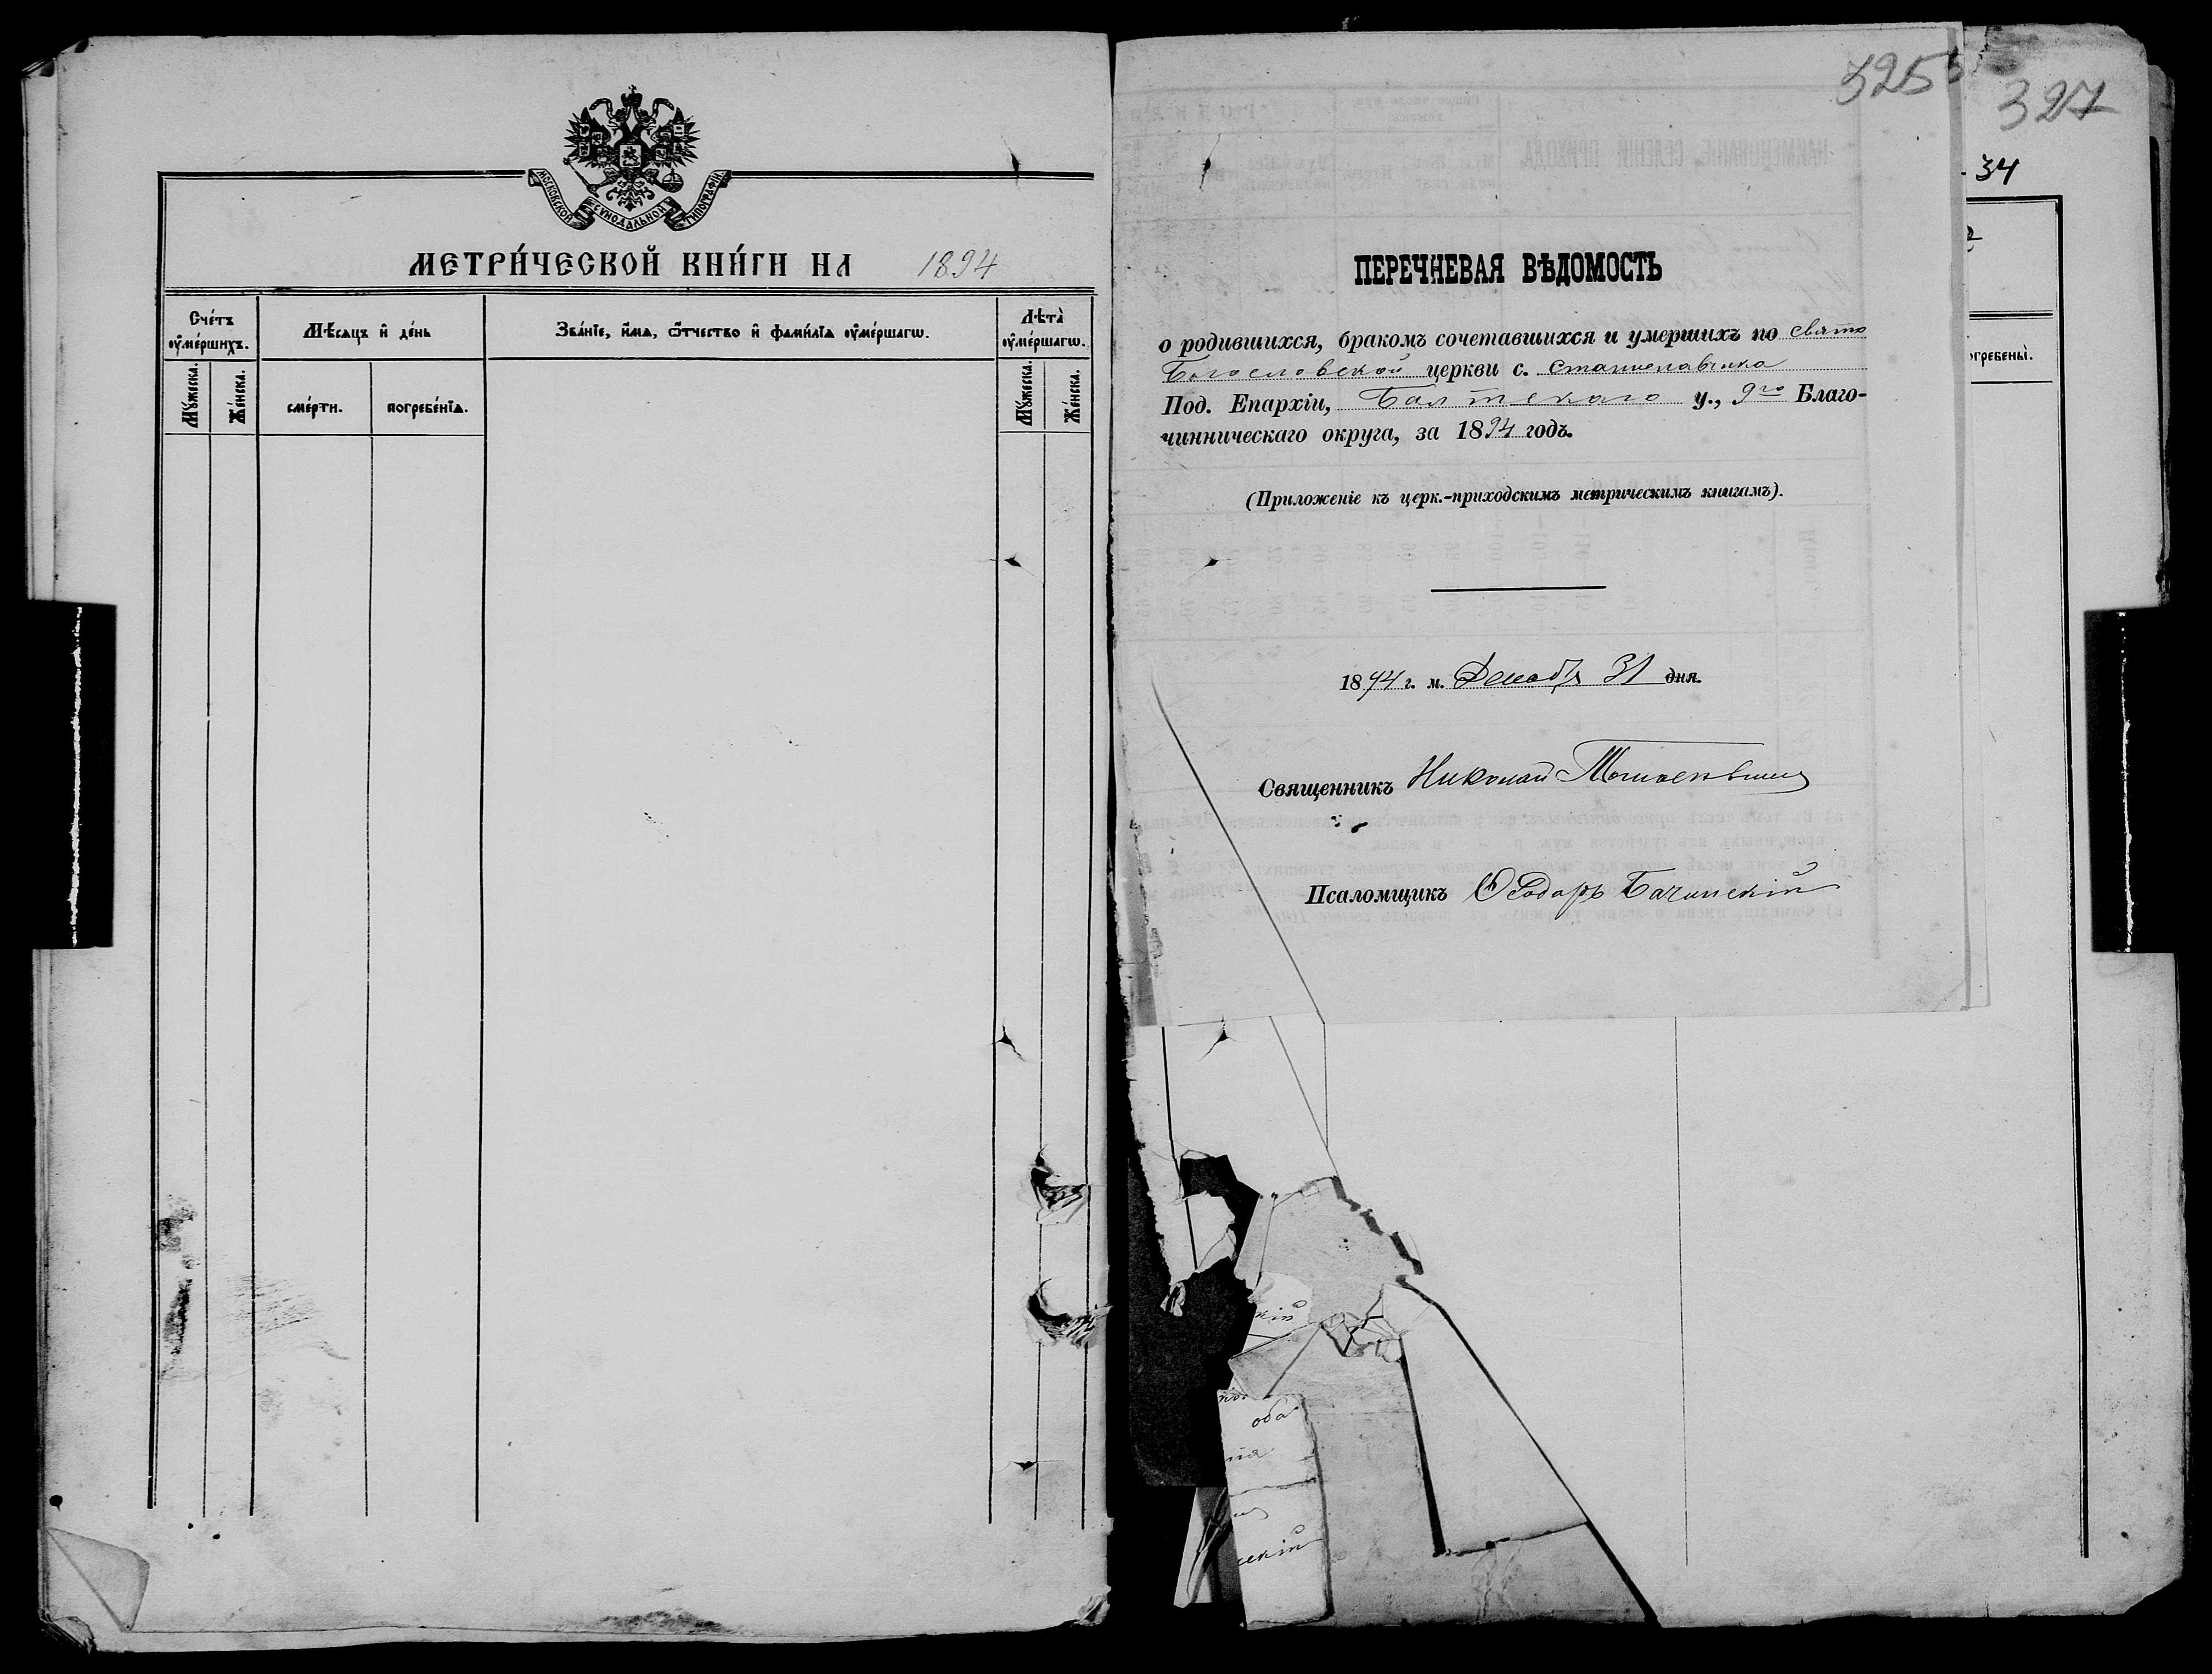 МОСКОВСКОЙ СѴНОДАЛЬНОЙ ТИПОГРАФІИ
МЕТРИ́ЧЕСКОЙ КНИ́ГИ НА 1894
Сче́тъ ᲂу҆ме́ршихъ.
Мѣ́сяцъ и҆ де́нь
Зва́нїе, и҆́мя, ѻ҆́тчество и҆ фами́лїа ᲂу҆ме́ршагѡ.
Лѣ́та ᲂу҆ме́ршагѡ.
Мꙋ́жеска.
Же́нска.
сме́рти.
погребе́нїѧ.
Мꙋ́жеска.
Же́нска.
325
327
34
ПЕРЕЧНЕВАЯ ВѢДОМОСТЬ
о родившихся, бракомъ сочетавшихся и умершихъ по свято
Богословской церкви с. Станиславчика
Под. Епархіи, Балтскаго у., 9го Благо-
чинническаго округа, за 1894 годъ.
(Приложеніе къ церк.-приходскимъ метрическимъ книгамъ).
1894 г. м. Декабр 31 дня.
Священникъ Николай
Псаломщикъ Ѳеодоръ Бачинскій
огребены̀.
кій
оба
нія
скій